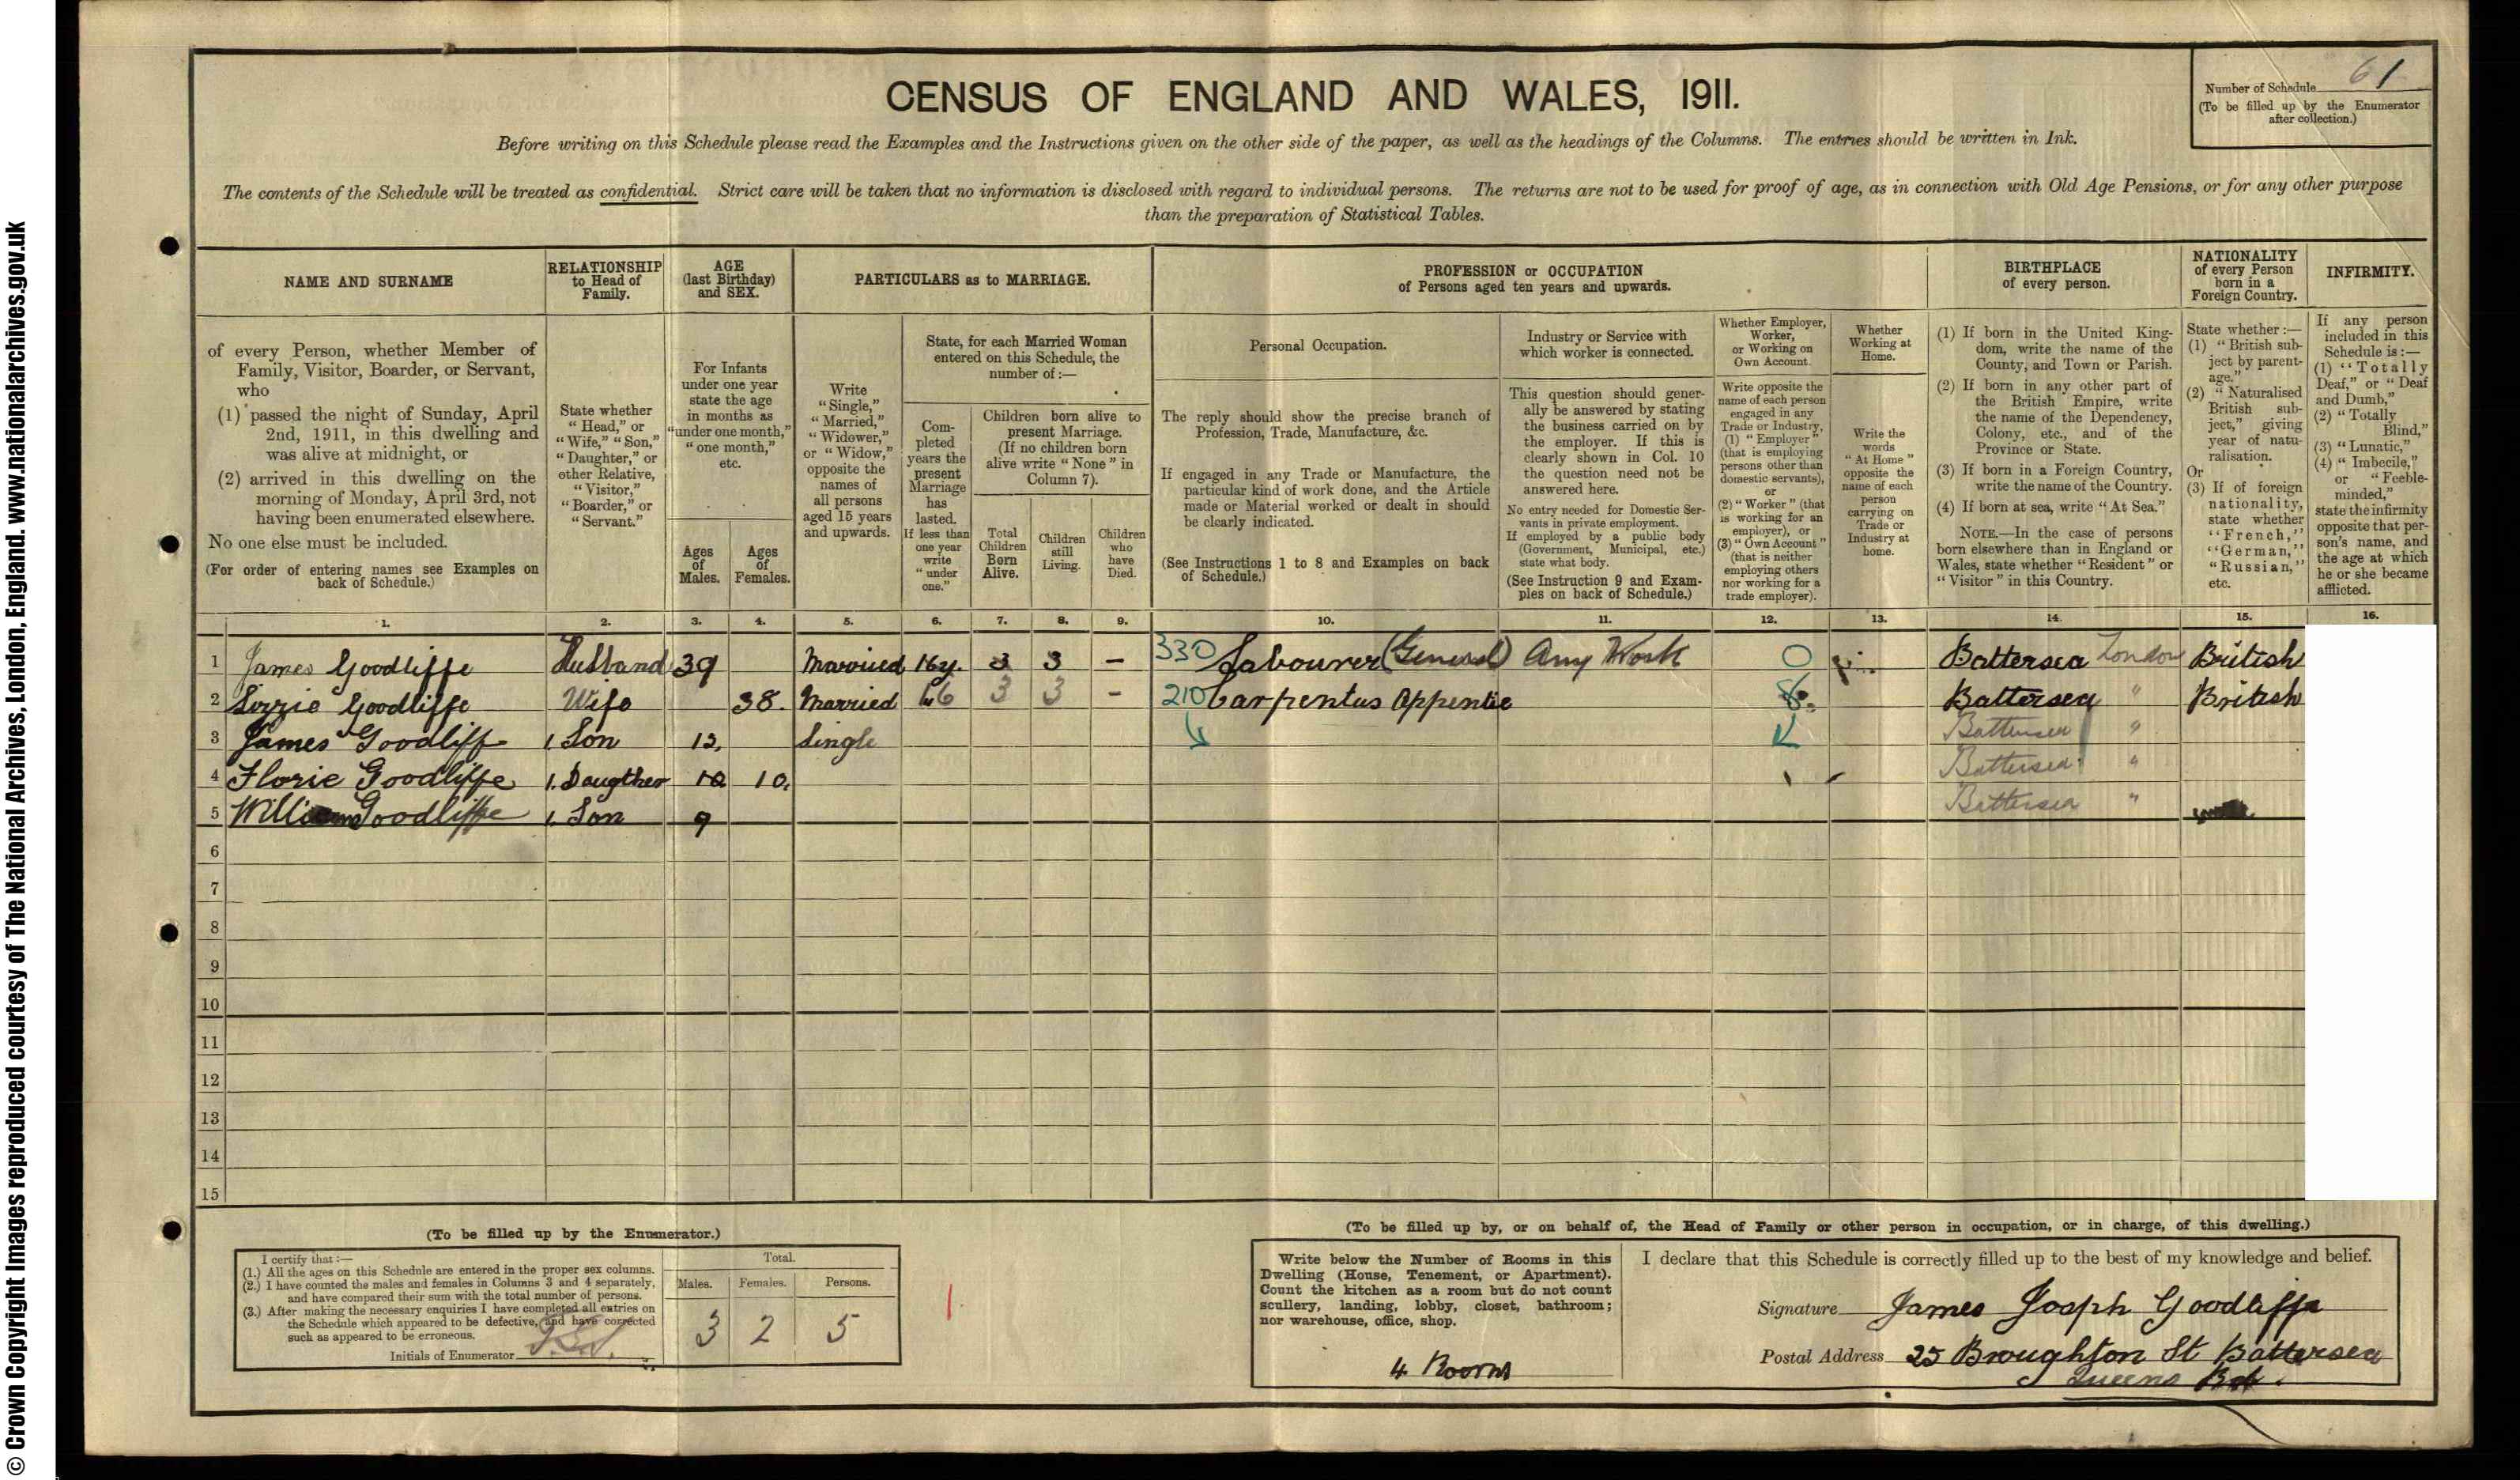 CENSUS OF ENGLAND AND WALES, 1911.
Number of Schedule 61
(To be filled up by the Enumerator
after collection.)
Before writing on this Schedule please read the Examples and the Instructions given on the other side of the paper, as well as the headings of the Columns. The entries should be written in Ink.
The contents of the Schedule will be treated as confidential. Strict care will be taken that no information is disclosed with regard to individual persons. The returns are not to be used for proof of age, as in connection with Old Age Pensions, or for any other purpose
than the preparation of Statistical Tables.
NAME AND SURNAME
of every Person, whether Member of
Family, Visitor, Boarder, or Servant,
who
(1) passed the night of Sunday, April
2nd, 1911, in this dwelling and
was alive at midnight, or
(2) arrived in this dwelling on the
morning of Monday, April 3rd, not
having been enumerated elsewhere.
No one else must be included.
(For order of entering names see Examples on
back of Schedule.)
RELATIONSHIP
to Head of
Family.
State whether
"Head," or
"Wife," "Son,"
"Daughter," or
other Relative,
"Visitor,"
"Boarder," or
"Servant."
AGE
(last Birthday)
and SEX.
For Infants
under one year
state the age
in months as
"under one month,"
"one month,"
etc.
Ages
of
Males.
Ages
of
Females.
PARTICULARS as to MARRIAGE.
Write
"Single,"
"Married,"
"Widower,"
or "Widow,"
opposite the
names of
all persons
aged 15 years
and upwards.
State, for each Married Woman
entered on this Schedule, the
number of :—
Com-
pleted
years the
present
Marriage
has
lasted.
If less than
one year
write
"under
one."
Children born alive to
present Marriage.
(If no children born
alive write "None" in
Column 7).
Total
Children
Born
Alive.
Children
still
Living.
Children
who
have
Died.
PROFESSION or OCCUPATION
of Persons aged ten years and upwards.
Personal Occupation.
The reply should show the precise branch of
Profession, Trade, Manufacture, &c.
If engaged in any Trade or Manufacture, the
particular kind of work done, and the Article
made or Material worked or dealt in should
be clearly indicated.
(See Instructions 1 to 8 and Examples on back
of Schedule.)
Industry or Service with
which worker is connected.
This question should gener-
ally be answered by stating
the business carried on by
the employer. If this is
clearly shown in Col. 10
the question need not be
answered here.
No entry needed for Domestic Ser-
vants in private employment.
If employed by a public body
(Government, Municipal, etc.)
state what body.
(See Instruction 9 and Exam-
ples on back of Schedule.)
Whether Employer,
Worker,
or Working on
Own Account.
Write opposite the
name of each person
engaged in any
Trade or Industry,
(1) "Employer"
(that is employing
persons other than
domestic servants),
or
(2) "Worker" (that
is working for an
employer), or
(3) "Own Account"
(that is neither
employing others
nor working for a
trade employer).
Whether
Working at
Home.
Write the
words
"At Home"
opposite the
name of each
person
carrying on
Trade or
Industry at
home.
BIRTHPLACE
of every person.
(1) If born in the United King-
dom, write the name of the
County, and Town or Parish.
(2) If born in any other part of
the British Empire, write
the name of the Dependency,
Colony, etc., and of the
Province or State.
(3) If born in a Foreign Country,
write the name of the Country.
(4) If born at sea, write "At Sea."
NOTE.—In the case of persons
born elsewhere than in England or
Wales, state whether "Resident" or
"Visitor" in this Country.
NATIONALITY
of every Person
born in a
Foreign Country.
State whether :—
(1) "British sub-
ject by parent-
age."
(2) "Naturalised
British sub-
ject," giving
year of natu-
ralisation.
Or
(3) If of foreign
nationality,
state whether
"French,"
"German,"
"Russian,"
etc.
INFIRMITY.
If any person
included in this
Schedule is :—
(1) "Totally
Deaf," or "Deaf
and Dumb,"
(2) "Totally
Blind,"
(3) "Lunatic,"
(4) "Imbecile,"
or "Feeble-
minded,"
state the infirmity
opposite that per-
son's name, and
the age at which
he or she became
afflicted.
1. 2. 3. 4. 5. 6. 7. 8. 9. 10. 11. 12. 13. 14. 15. 16.
1 James Goodliffe Husband 39 Married 16y. 3 3 – 330 Labourer (General) Any Work 0 Battersea London British
2 Lizzie Goodliffe Wife 38. Married 16 3 3 – 210 Carpentus Appentie Battersea " British
3 James Goodliff 1 Son 15. Single Battersea "
4 Florie Goodliffe 1. Daugther 10 10. Battersea "
5 William Goodliffe 1. Son 9 Battersea "
6
7
8
9
10
11
12
13
14
15
(To be filled up by the Enumerator.)
I certify that :—
(1.) All the ages on this Schedule are entered in the proper sex columns.
(2.) I have counted the males and females in Columns 3 and 4 separately,
and have compared their sum with the total number of persons.
(3.) After making the necessary enquiries I have completed all entries on
the Schedule which appeared to be defective, and have corrected
such as appeared to be erroneous.
Initials of Enumerator
Total.
Males. Females. Persons.
3 2 5
1.
(To be filled up by, or on behalf of, the Head of Family or other person in occupation, or in charge, of this dwelling.)
Write below the Number of Rooms in this
Dwelling (House, Tenement, or Apartment).
Count the kitchen as a room but do not count
scullery, landing, lobby, closet, bathroom;
nor warehouse, office, shop.
4 Rooms
I declare that this Schedule is correctly filled up to the best of my knowledge and belief.
Signature James Joseph Goodliffe
Postal Address 25 Broughton St Battersea
Queens Rd.
© Crown Copyright Images reproduced courtesy of The National Archives, London, England. www.nationalarchives.gov.uk